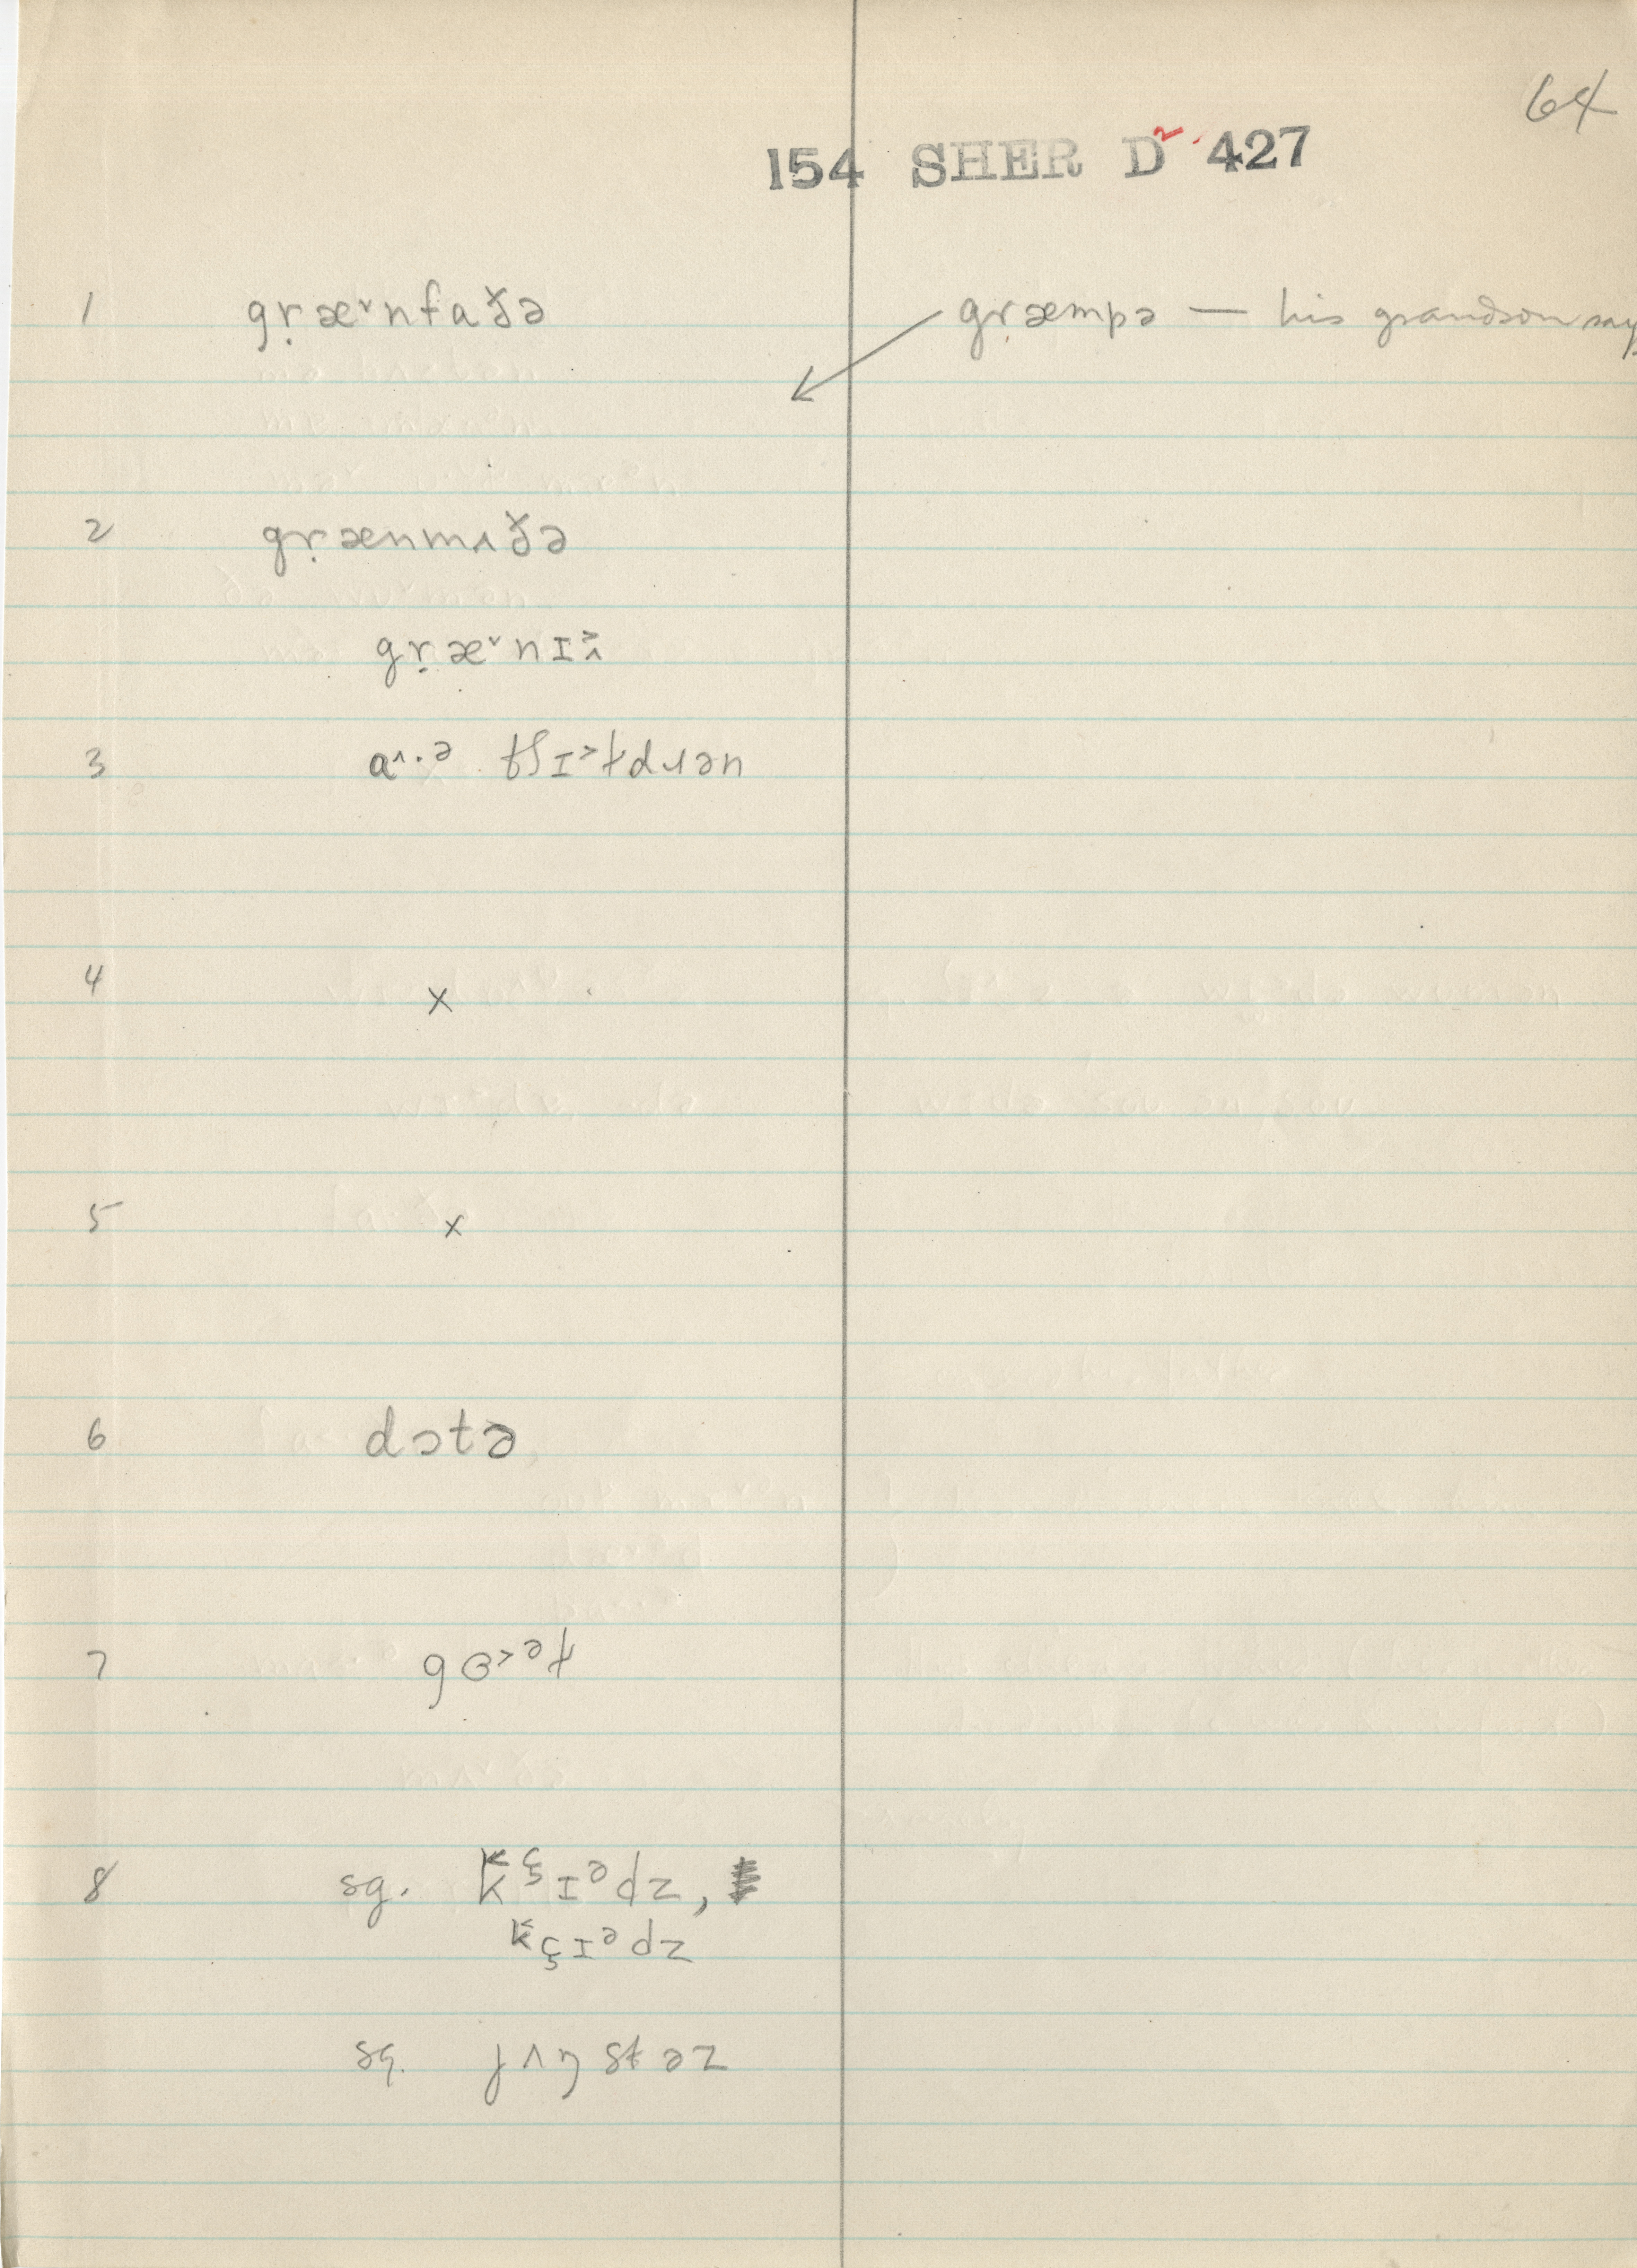 64
154 SHER D 427
1 gṛæ˅nfaðə gṛæmpə — his grandson says
2 gṛænmʌðə
gṛæ˅nɪ
3 a^·ə tʃɪ˃ɫdɹən
4 x
5 x
6 dɔtə
7 gɵ˃əɫ
8 sg. k̬ᶝɪᵊdz,
k̬ɕɪᵊdz
sg. jʌŋstəz